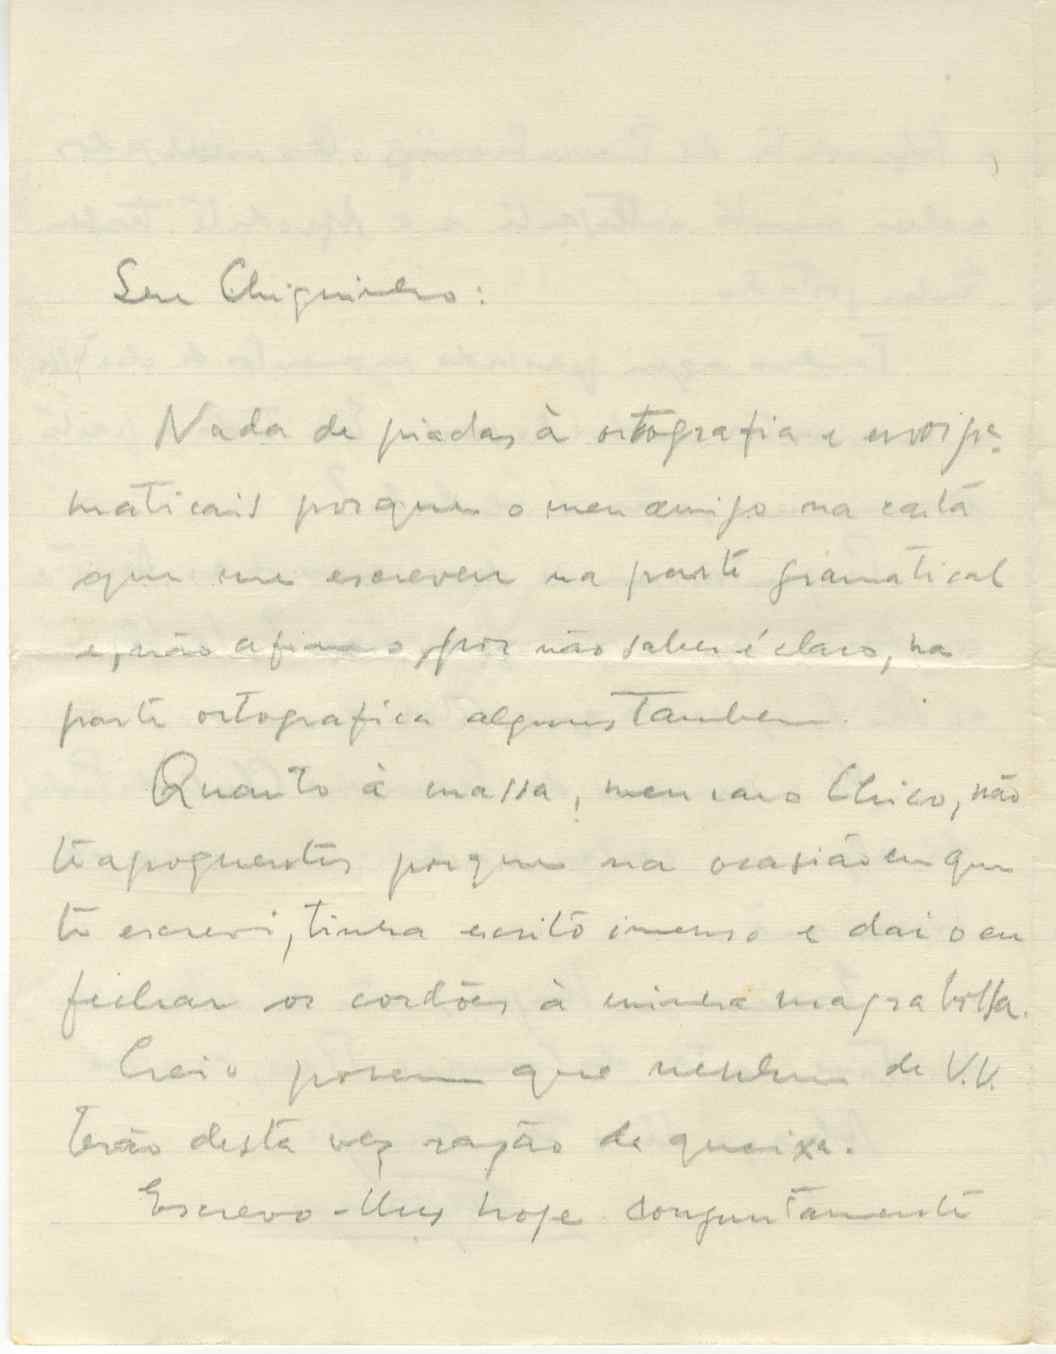 Seu Chiquinho:
Nada de piadas à ortografia e
maticais porque o meu amigo na carta
que me escreveu na parte gramatical
e, não afirmo, por não saber é claro, na
parte ortografica alguns tambem.
Quanto à massa, meu caro Chico, não
te apoquentes porque na ocasião em que
te escrevi, tinha escrito imenso e dai o eu
fechar os cordões à minha magra bolsa.
Creio porem que nenhum de V.V.
terão desta vez razão de queixa.
Escrevo-lhes hoje conjuntamente